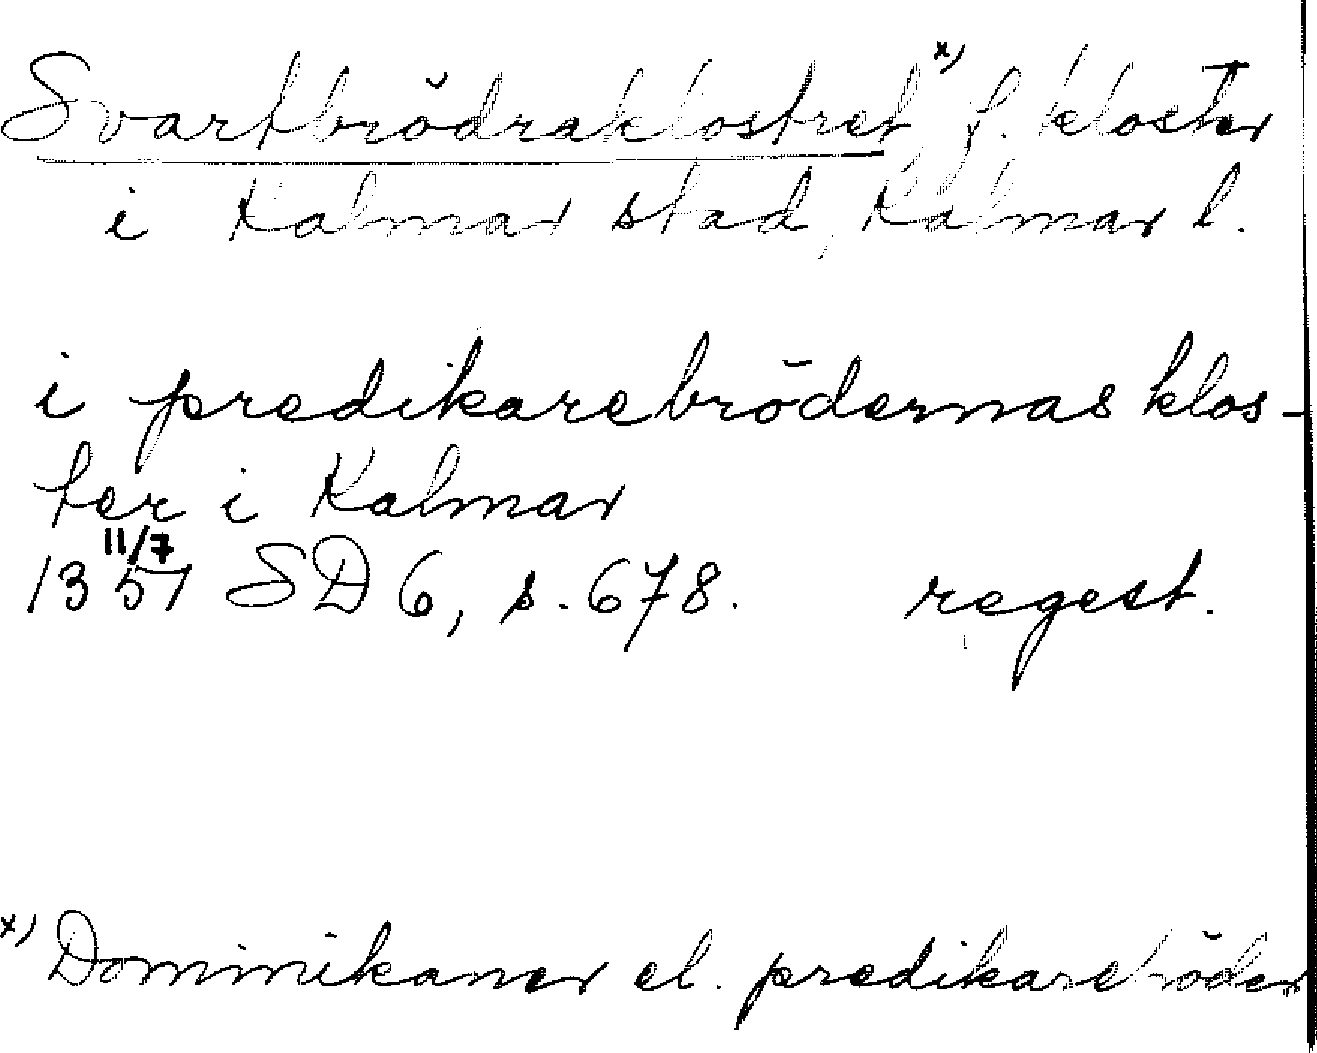 Svartbrödraklostret x) f. kloster
i Kalmar stad, Kalmar l.
i predikarebrödernas klos-
ter i Kalmar
11/7
1351 SD 6, s. 678. regest.
x) Dominikaner el. predikarebröder